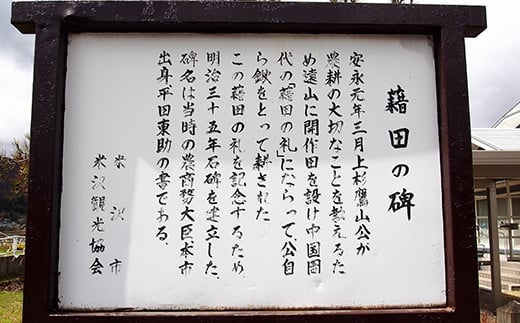 藉田の碑
安永元年三月上杉鷹山公が
農耕の大切なことを教えるた
め遠山に開作田を設け中国周
代の「藉田の礼」にならって、公自
ら鍬をとって耕された
この藉田の礼を記念するため、
明治三十五年石碑を建立した、
碑名は当時の農商務大臣本市
出身平田東助の書である、
米沢市
米沢観光協会